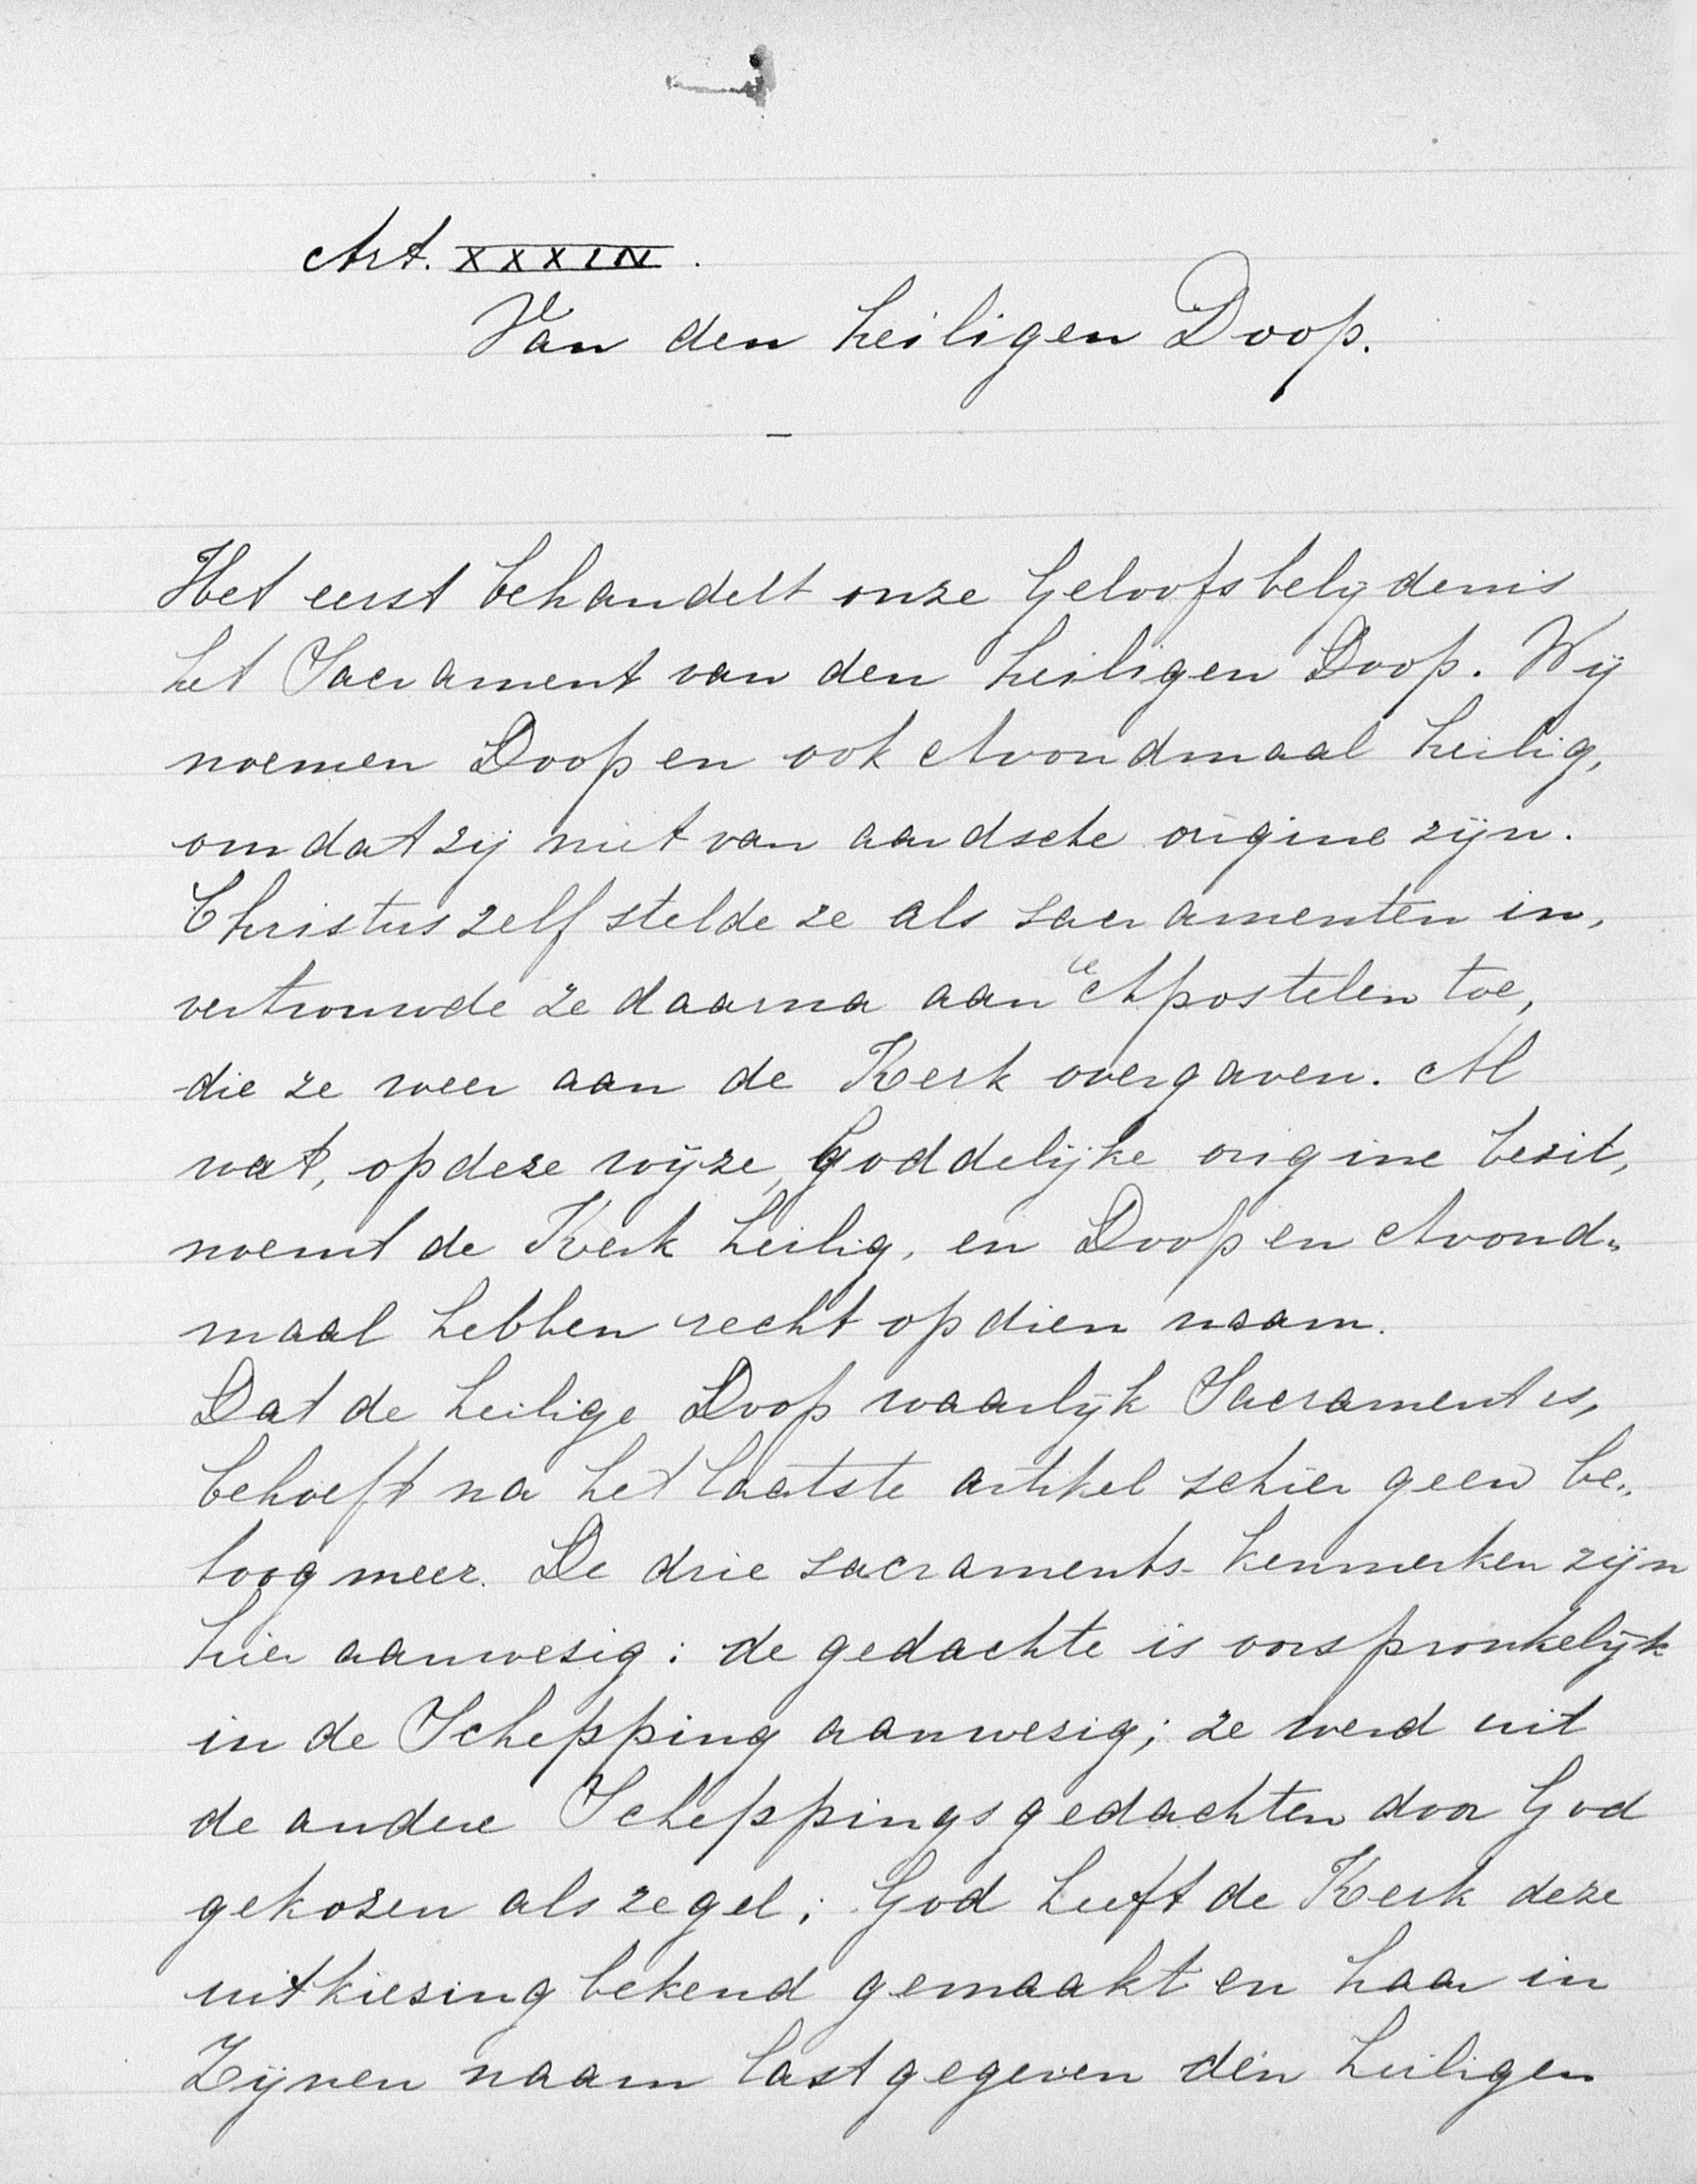 Art. XXXIV.
Van den heiligen Doop.
–
Het eerst behandelt onze Geloofsbelijdenis
het Sacrament van den heiligen Doop. Wij
noemen Doop en ook Avondmaal heilig,
omdat zij niet van aardsche origine zijn.
Christus zelf stelde ze als sacramenten in,
vertrouwde ze daarna aan de Apostelen toe,
die ze weer aan de Kerk overgaven. Al
wat, op deze wijze, Goddelijke origine bezit,
noemt de Kerk heilig, en Doop en Avond-
maal hebben recht op dien naam.
Dat de heilige Doop waarlijk Sacrament is,
behoeft na het laatste artikel schier geen be-
toog meer. De drie sacraments-kenmerken zijn
hier aanwezig: de gedachte is oorspronkelijk
in de Schepping aanwezig; ze werd uit
de andere Scheppingsgedachten door God
gekozen als zegel; God heeft de Kerk deze
uitkiezing bekend gemaakt en haar in
Zijnen naam last gegeven den heiligen